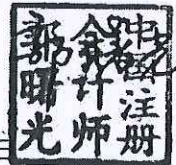 中国注册
会计师
郭曙光